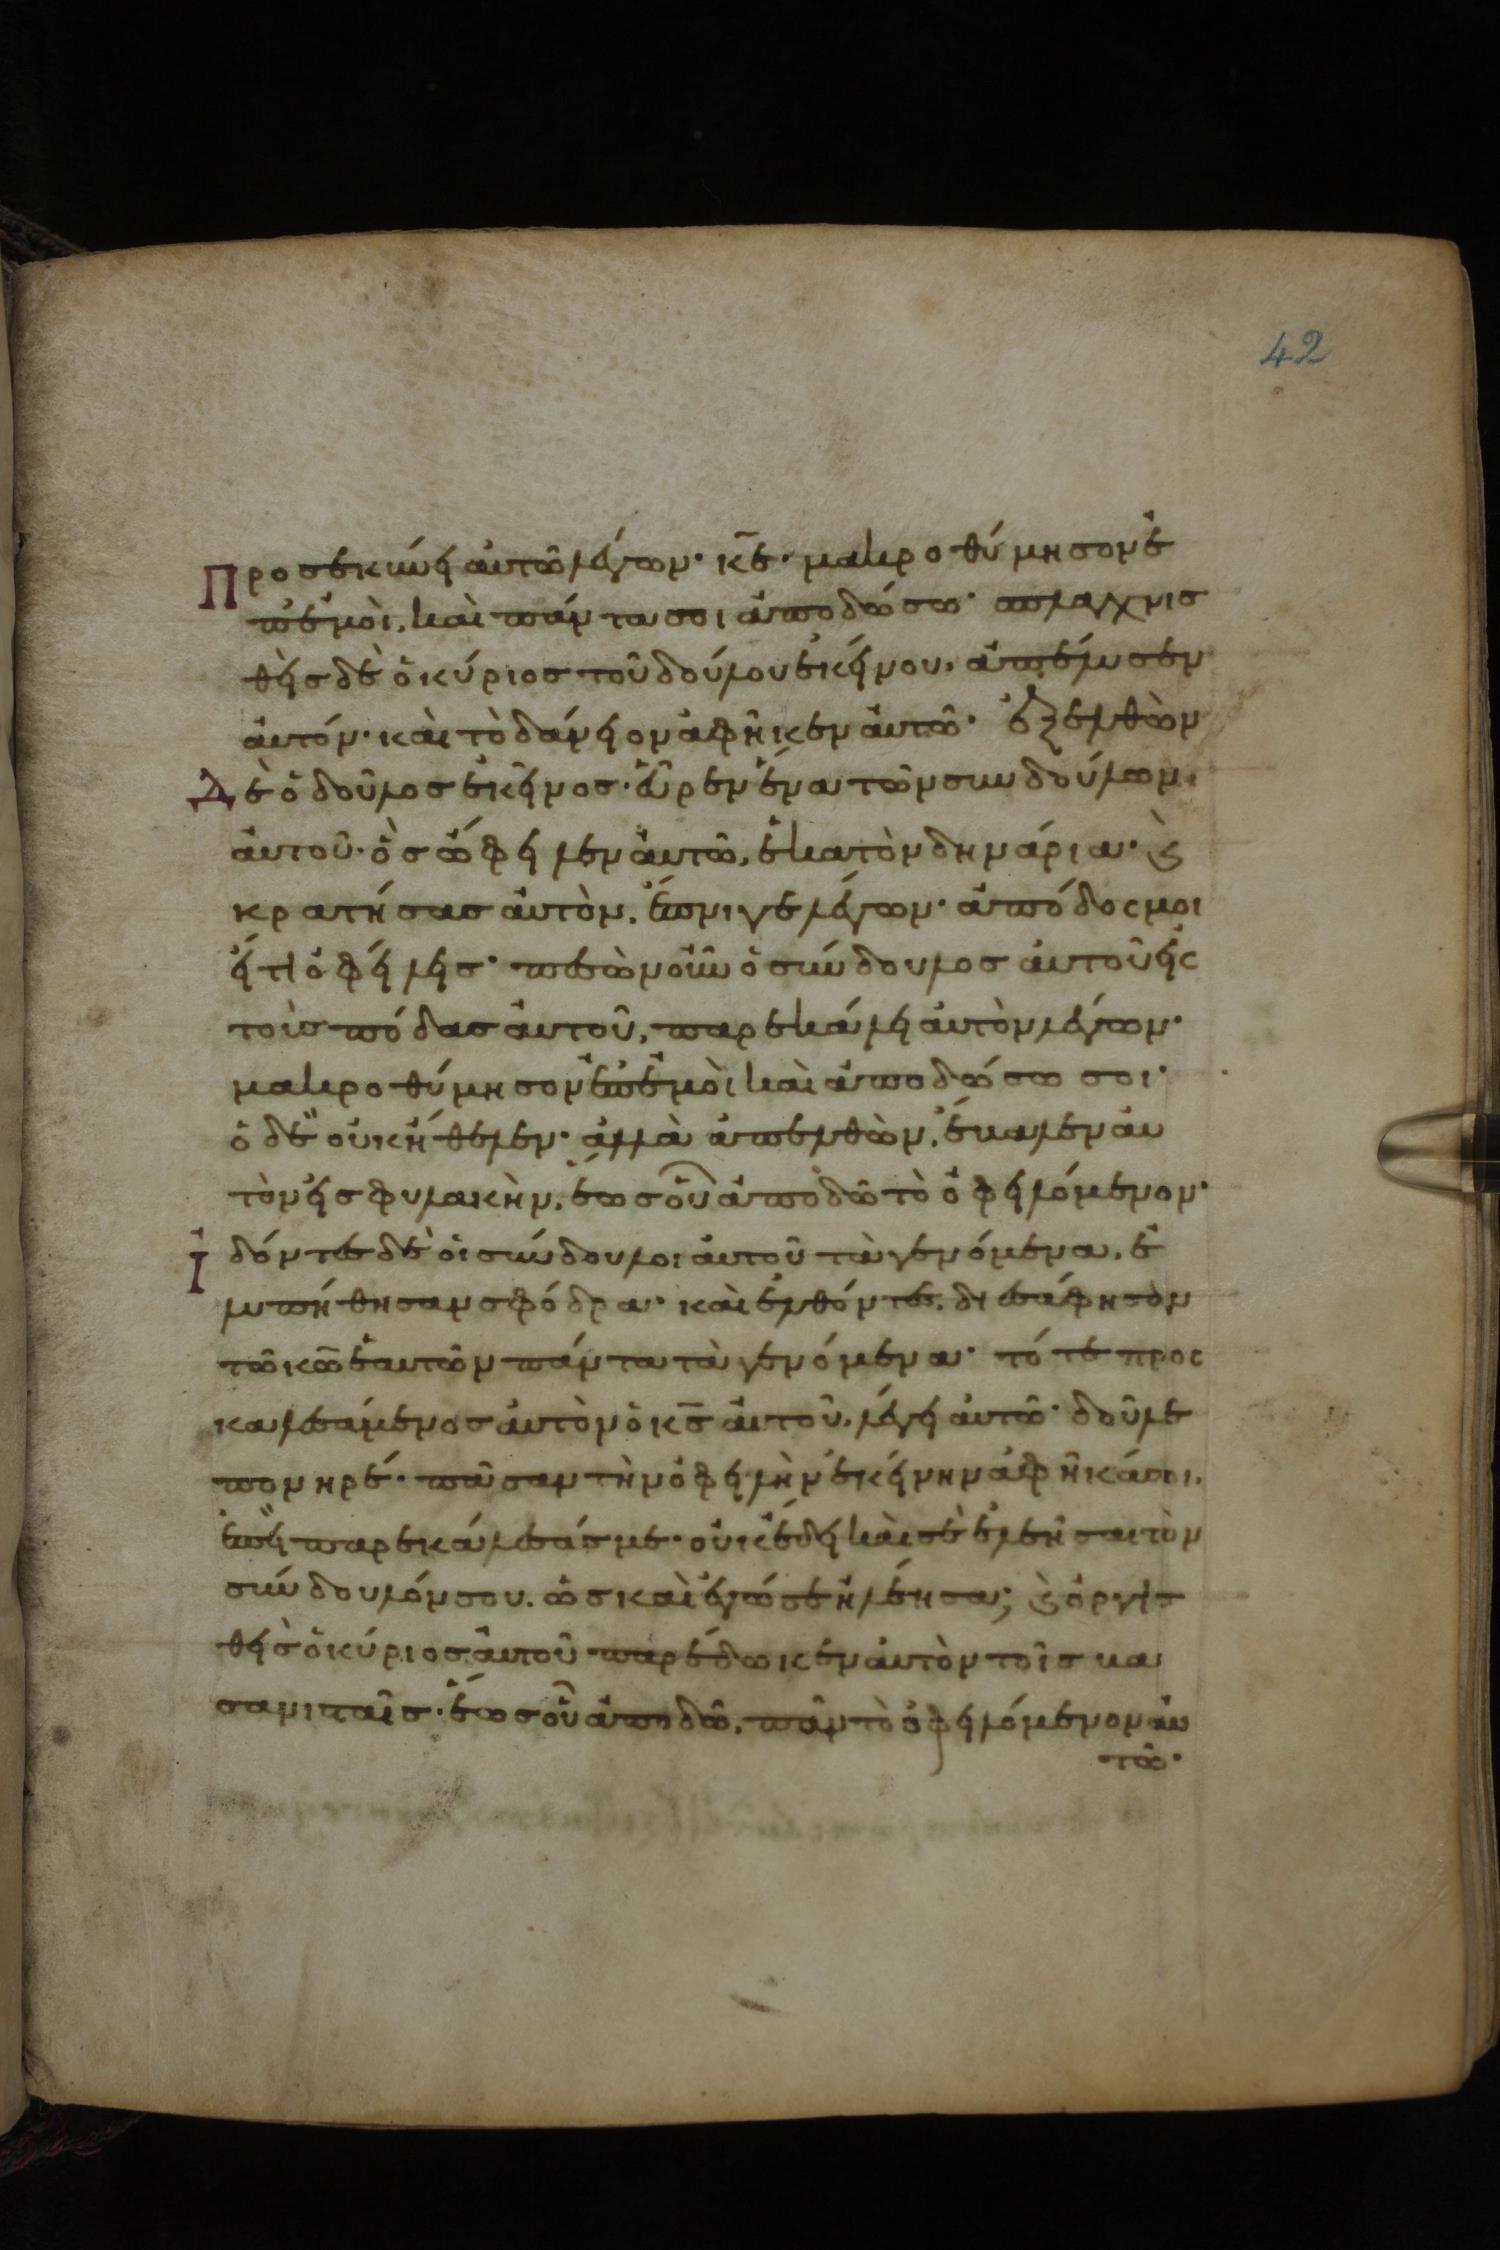 42
Προσεκύνει αὐτῶ λέγων· κ̅ε· μακροθύμησον ἐ
π' ἐμοὶ, καὶ πάντα σοι ἀποδώσω· σπλαγχνισ
θεὶς δὲ ὁ κύριος τοῦ δούλου ἐκείνου, ἀπέλυσεν
αὐτόν· καὶ τὸ δάνειον ἀφῆκεν αὐτῶ· ἐξελθὼν
Δὲ ὁ δοῦλος ἐκεῖνος· εὗρεν ἕνα τῶν συνδούλων
αὐτοῦ· ὃς ὤφειλεν αὐτῶ, ἑκατὸν δηνάρια· ϗ
κρατήσας αὐτὸν, ἔπνιγε λέγων· ἀπόδος μοι
εἴ τι ὀφείλεις· πεσὼν οὖν ὁ σύνδουλος αὐτοῦ εἰς
τοὺς πόδας αὐτοῦ, παρεκάλει αὐτὸν λέγων·
μακροθύμησον ἐπ' ἐμοὶ καὶ ἀποδώσω σοι·
ὁ δὲ οὐκ ἤθελεν· ἀλλὰ ἀπελθὼν, ἔβαλεν αὐ
τὸν εἰς φυλακὴν, ἕως οὗ ἀποδῶ τὸ ὀφειλόμενον·
Ἰδόντες δὲ οἱ σύνδουλοι αὐτοῦ τὰ γενόμενα, ἐ
λυπήθησαν σφόδρα· καὶ ἐλθόντες, διεσάφησὸν
τῶ κ̅ω ἑαυτῶν πάντα τὰ γενόμενα· τότε προσ
καλεσάμενος αὐτὸν ὁ κ̅ς αὐτοῦ, λέγει αὐτῶ· δοῦλε
πονηρέ· πᾶσαν τὴν ὀφειλὴν ἐκείνην ἀφῆκά σοι,
ἐπεὶ παρεκάλεσάς με· οὐκ ἔδει καὶ σὲ ἐλεῆσαι τὸν
σύνδουλόν σου. ὡς καὶ ἐγώ σε ἠλέησα; ϗ ὀργισ
θεὶς ὁ κύριος αὐτοῦ παρέδωκεν αὐτὸν τοῖς βα
σανισταῖς· ἕως οὗ ἀποδῶ, πᾶν τὸ ὀφειλόμενον αὐ
τῶ·